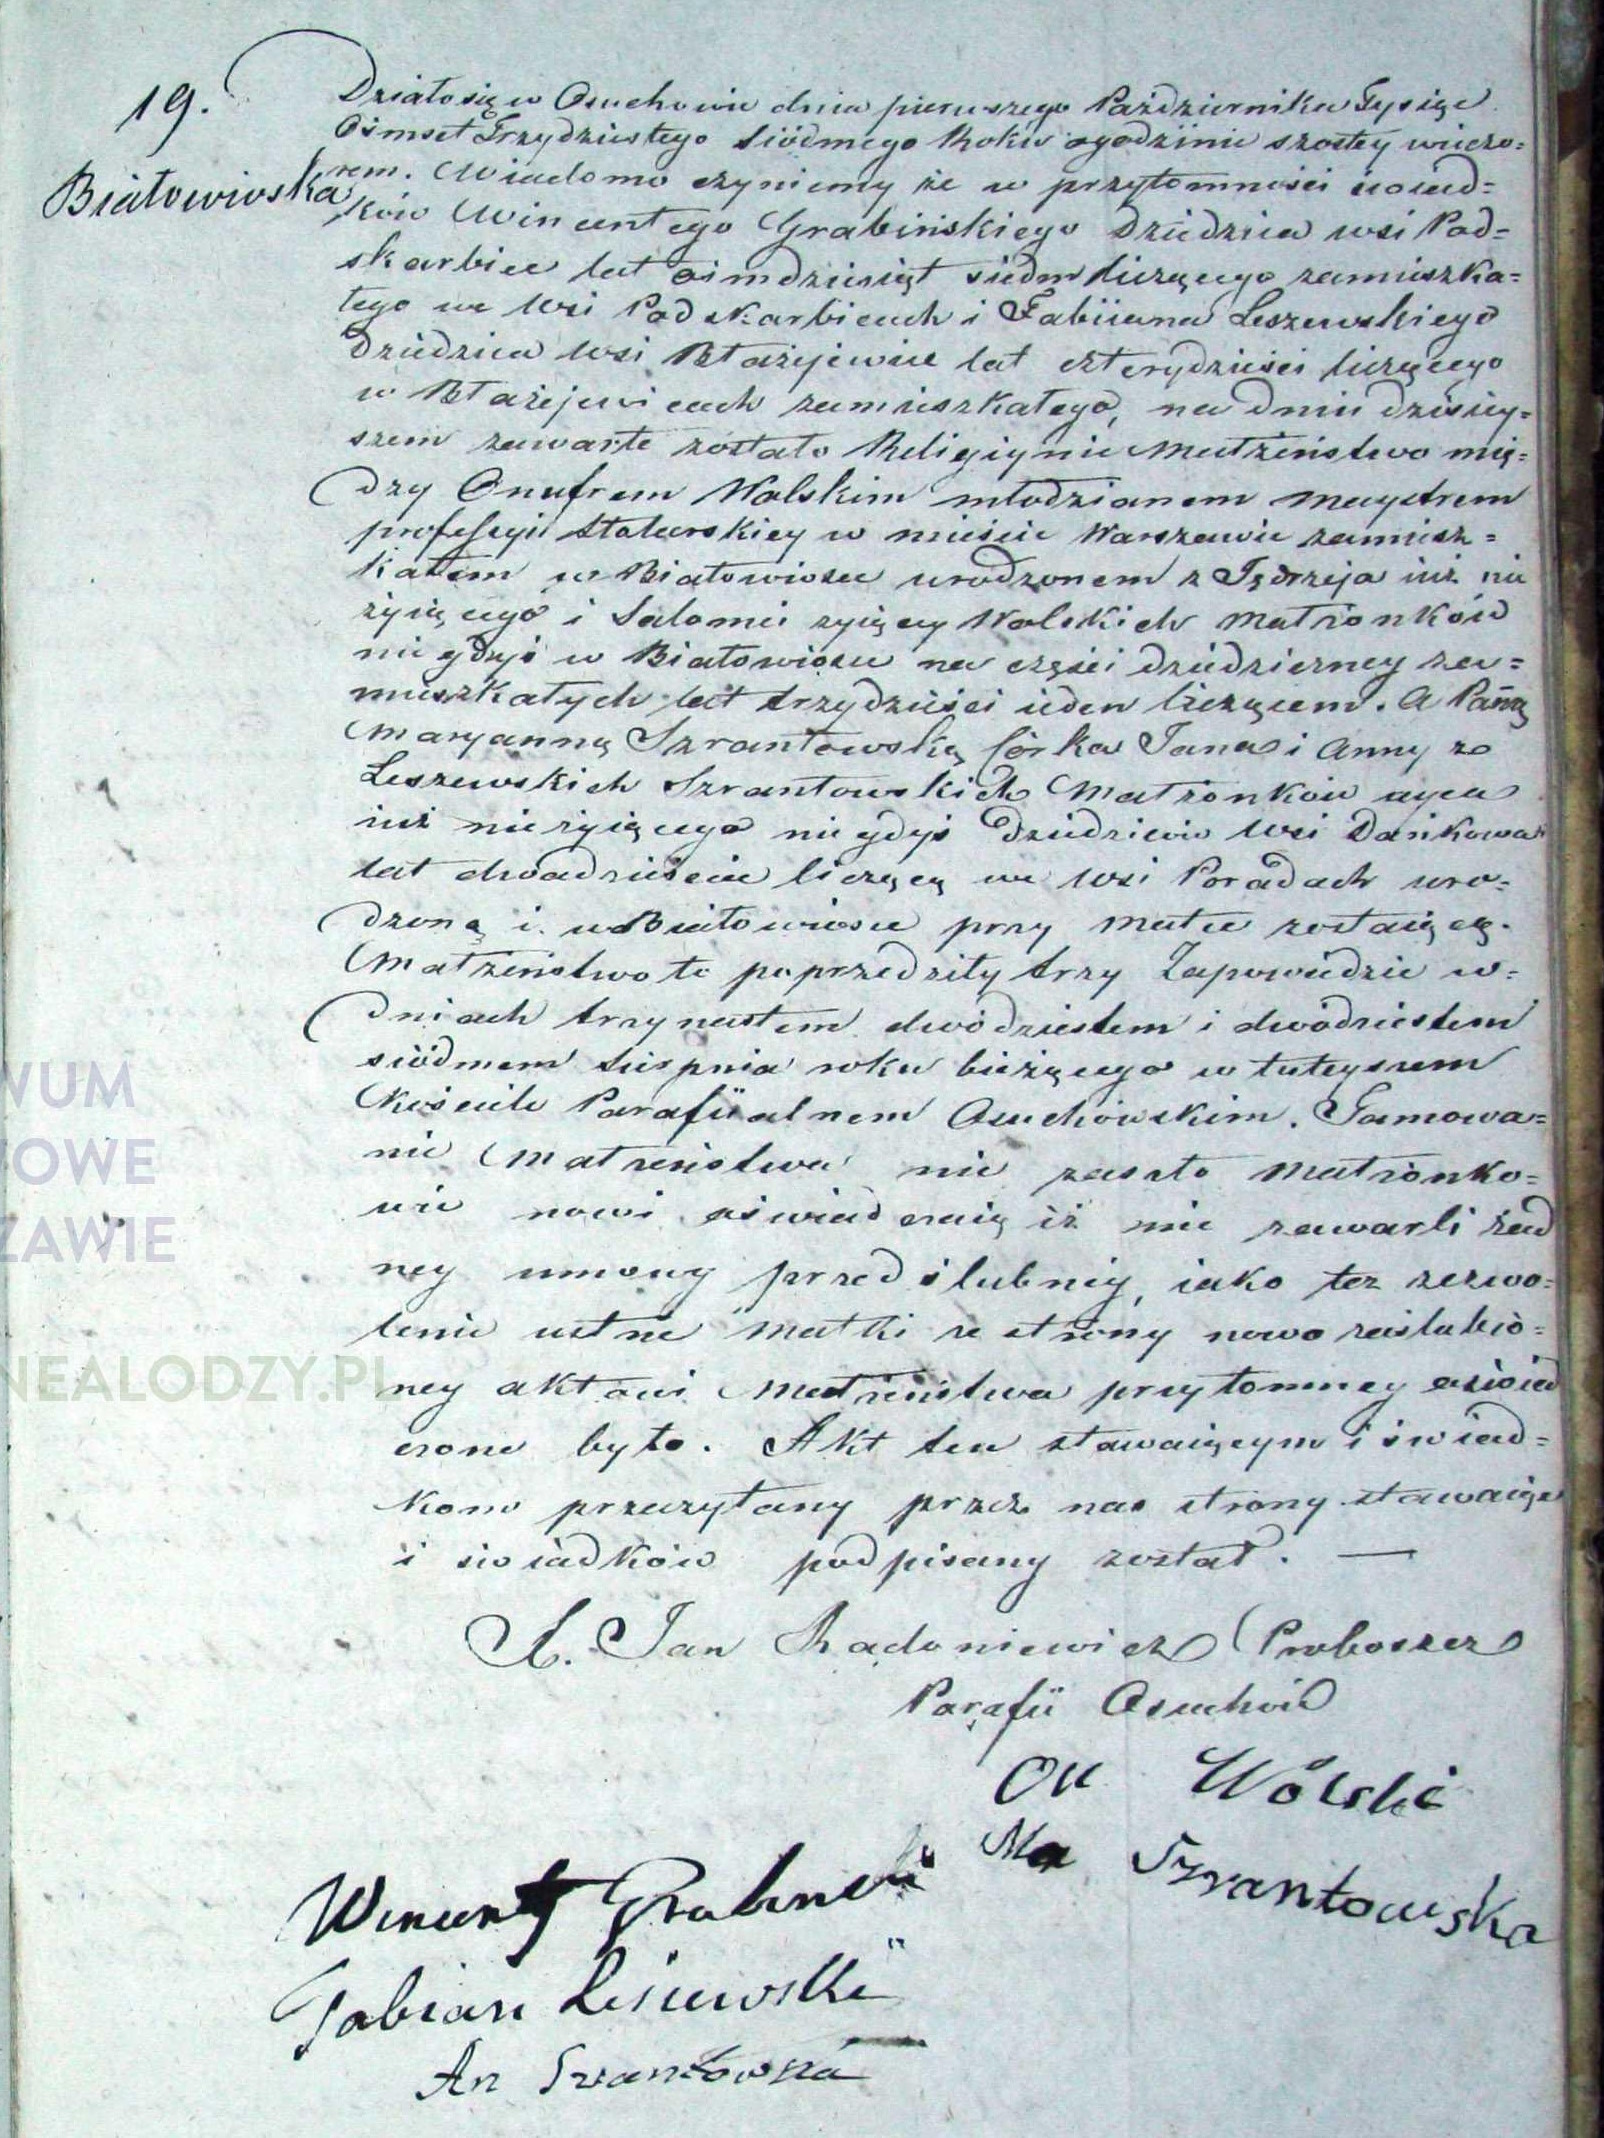 19.
Białowioska
Działo się w Osuchowie dnia pierwszego Października Tysiąc
Ośmset Trzydziestego Siódmego Roku ogodzinie szostey wieczo=
rem. Wiadomo czyniemy że w przytomności świad=
ków Wincentego Grabińskiego Dziedzica wsi Pod=
skarbice lat ośmdziesiąt siedm liczącego zamieszka=
łego we Wsi Podskarbicach i Fabiiana Leszewskiego
Dziedzica Wsi Błażejewice lat czterydzieści liczącego
w Błażejewicach zamieszkałego, na dniu dzisiey=
szem zawarte zostało Religiynie Małżeństwo mię=
dzy Onufrem Wolskim młodzianem maystrem
professyi Stolarskiey w mieście Warszawie zamiesz=
kałem w Białowiosce urodzonem z Jędrzeja iuż nie
żyiącego i Salomei żyiącey Wolskich Małżonków
niegdyś w Białowiosce na części dziedziczney za=
mieszkałych lat trzydzieści ieden liczącem. A Panną
Maryanną Szrantowską Córką Jana i Anny z
Leszewskich Szrantowskich Małżonków oyca
iuż nieżyiącego niegdyś Dziedziców Wsi Dańkowa
lat dwadzieścia liczącą we Wsi Poradach uro=
dzoną i w Białowiosce przy matce zostaiącą.
Małżeństwo to poprzedziły trzy Zapowiedzie w=
dniach trzynastem dwódziestem i dwódziestem
siódmem sierpnia roku bieżącego w tuteyszem
Kościele Parafiialnem Osuchowskim. Tamowa=
nie Małżeństwa nie zaszło Małżonko=
wie nowi oświadczaią iż nie zawarli żad
ney umowy przedślubney, iako tez zezwo=
lenie ustne Matki ze strony nowo zaślubio=
ney aktowi Małżeństwa przytomney oświad
czone było. Akt ten stawaiącym i świad=
kom przeczytany przez nas strony stawaiące
i świadków podpisany został. —
X. Jan Radoniewicz Proboszcz
Parafii Osuchów
On Wólski
Ma Szrantowska
Wincenty Grabinski
Fabian Leszewski
An Szrantowska
WUM
OWE
ZAWIE
NEALODZY.PL